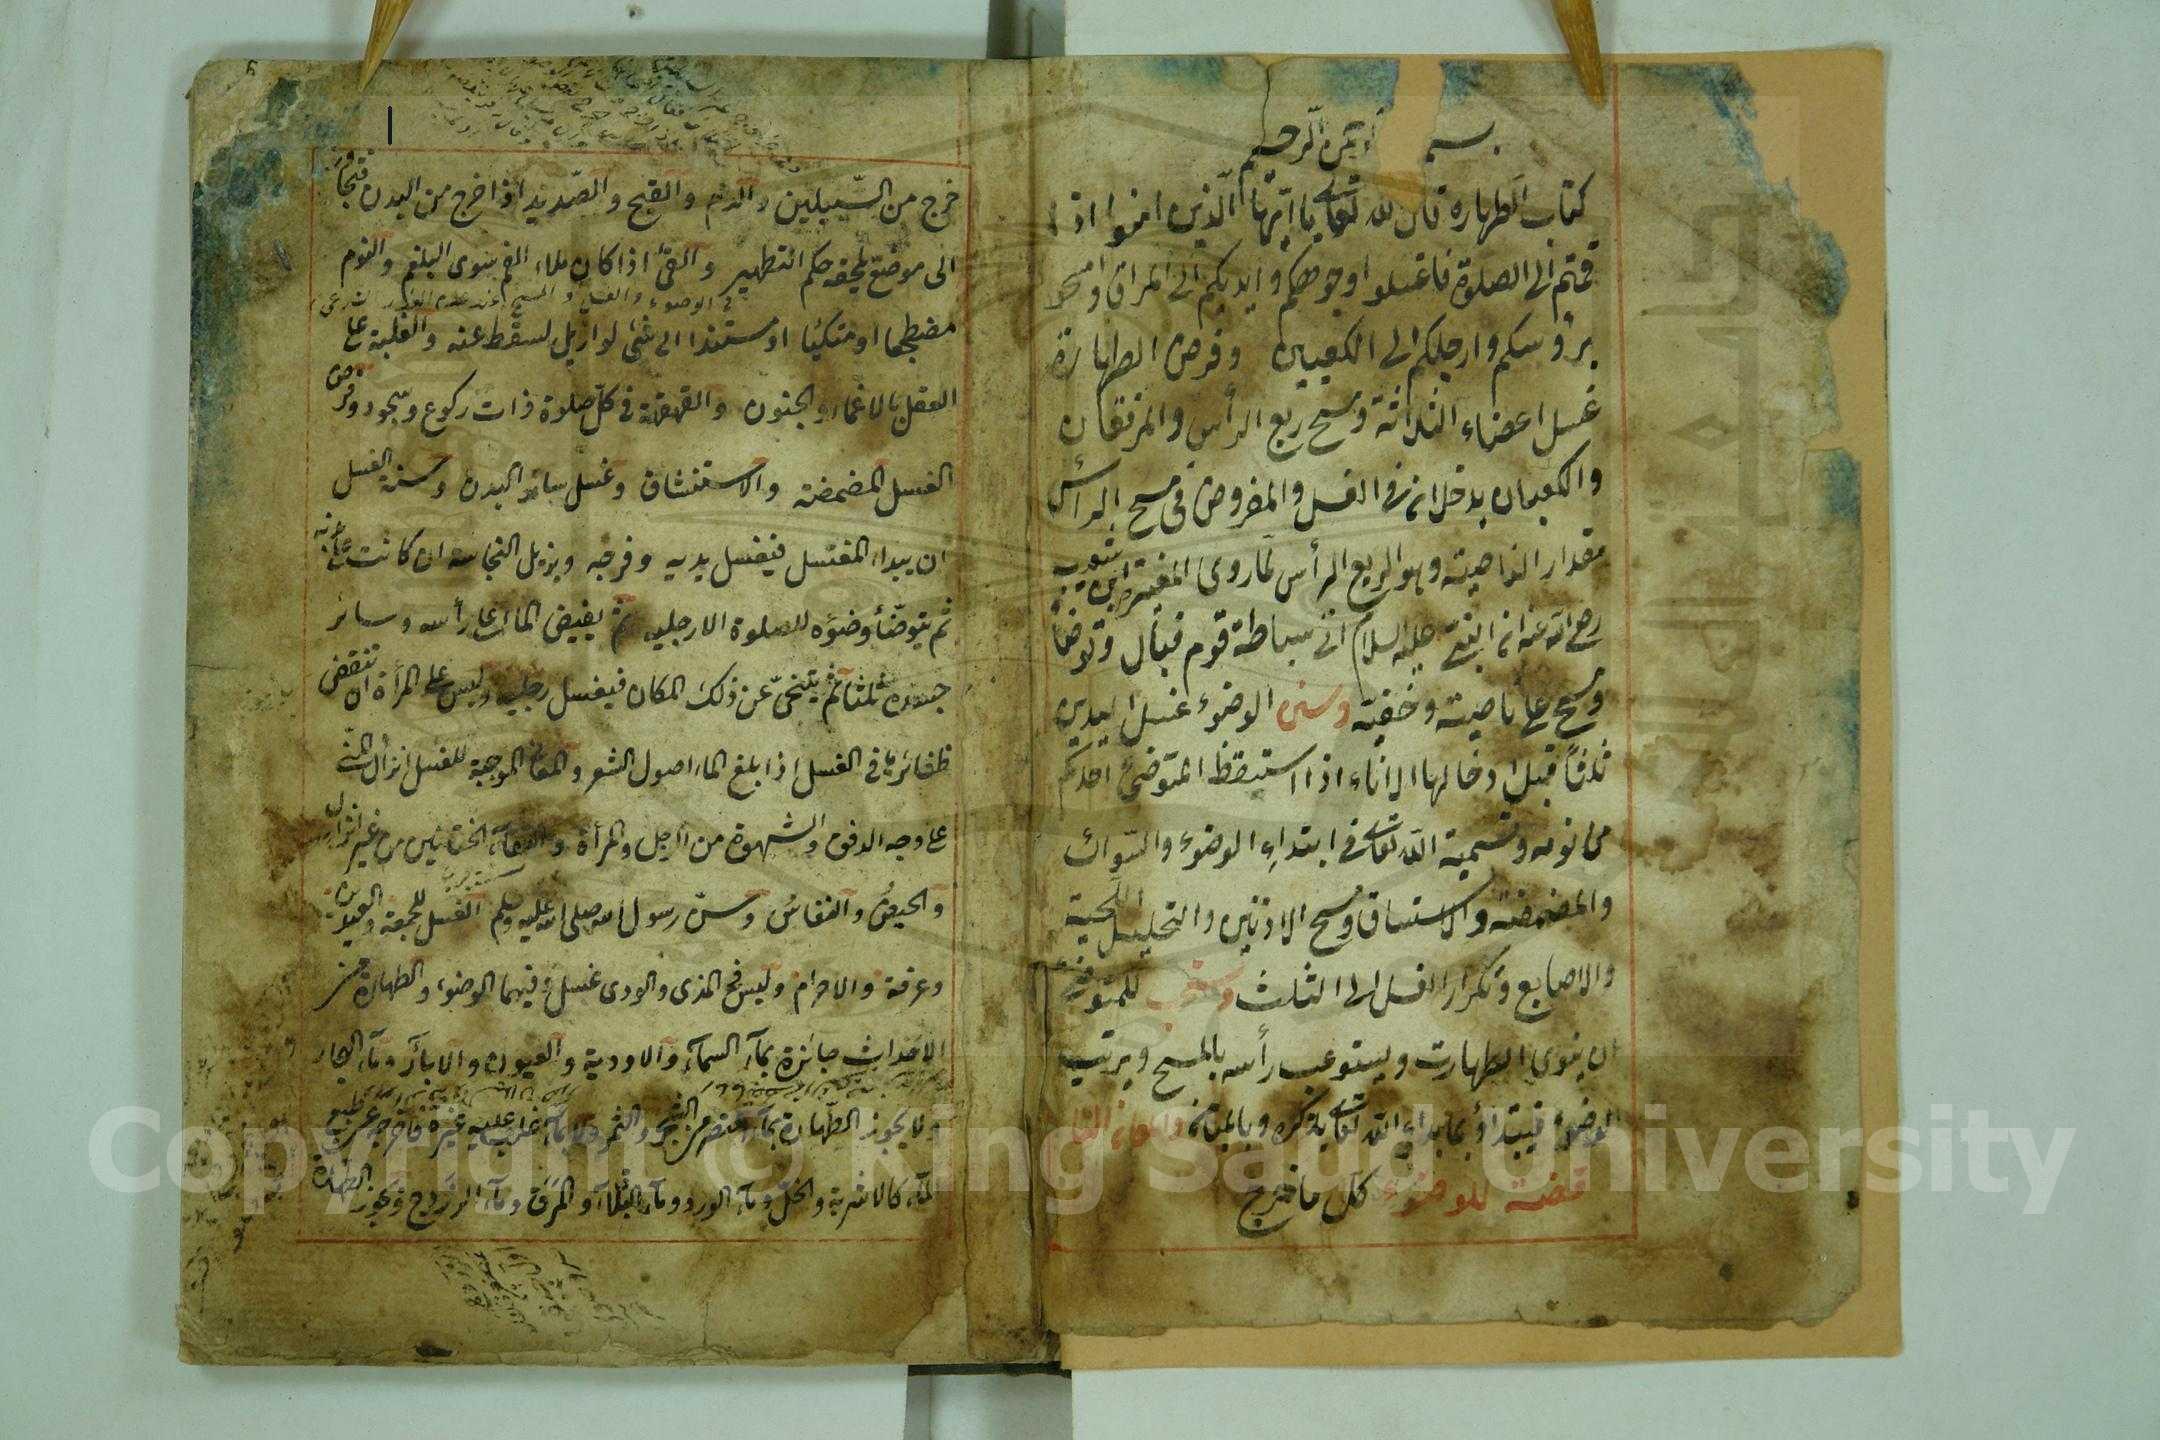 بسم الرحمن الرحيم
كتاب الطهارة قال الله تعالى يا ايها الذين امنوا اذا
قمتم الى الصلوة فاغسلوا وجوهكم وايديكم الى المرافق وامسحوا
برؤسكم وارجلكم الى الكعبين وفرض الطهارة
غسل اعضاء الثلاثة ومسح ربع الرأس والمرفقان
والكعبان يدخلان في الغسل والمفروض في مسح الرأس
مقدار الناصية وهو الربع الرأس لما روى المغيرة ابن شعبة
رضى الله عنه ان النبي عليه السلام اتى سباطة قوم فبال وتوضأ
ومسح على ناصيته وخفيه وسنن الوضوء غسل اليدين
ثلاثا قبل ادخالها الاناء اذا استيقظ المتوضئ احدكم
من نومه وتسمية الله تعالى في ابتداء الوضوء والسواك
والمضمضة والاستنشاق ومسح الاذنين والتخليل اللحية
والاصابع وتكرار الغسل الى الثلث ويستحب للمتوضئ
ان ينوى الطهارت ويستوعب رأسه بالمسح ويرتب
الوضوء فيبتدأ بما بداء الله تعالى بذكره وبالميامن والمعانى النا
قضة للوضوء كل ما خرج
خرج من السبيلين والدم والقيح والصديد اذا خرج من البدن فتجاوز
الى موضع يلحقه حكم التطهير والقئ اذا كان ملاء الفم سوى البلغم والنوم
مضطجعا او متكئا او مستندا الى شئ لو ازيل لسقط عنه والغلبة على
العقل بالاغماء والجنون والقهقهة في كل صلوة ذات ركوع وسجود وفرض
الغسل المضمضة والاستنشاق وغسل سائر البدن وسنة الغسل
ان يبداء المغتسل فيغسل يديه وفرجه ويزيل النجاسة ان كانت على بدنه
ثم يتوضأ وضوءه للصلوة الا رجليه ثم يفيض الماء على رأسه وسائر
جسده ثلثا ثم يتنحى عن ذلك المكان فيغسل رجليه وليس على المرأة ان تنقض
ظفائرها في الغسل اذا بلغ الماء اصول الشعر والمعانى الموجبة للغسل انزال المنى
على وجه الدفق والشهوة من الرجل والمرأة والتقاء الختانين من غير انزال
والحيض والنفاس وسن رسول الله صلى الله عليه وسلم الغسل للجمعة والعيدين
وعرفة والاحرام وليس في المذى والودى غسل وفيهما الوضوء والطهارة من
الاحداث جائزة بماء السماء والاودية والعيون والآبار وماء البحار
ولا يجوز الطهارة بماء اعتصر من الشجر والثمر ولا بماء غلب عليه غيره فاخرجه عن طبع
الماء كالاشربة والخل وماء الورد وماء الباقلاء والمرق وماء الزردج وتجوز الطهارة
Copyright © King Saud University